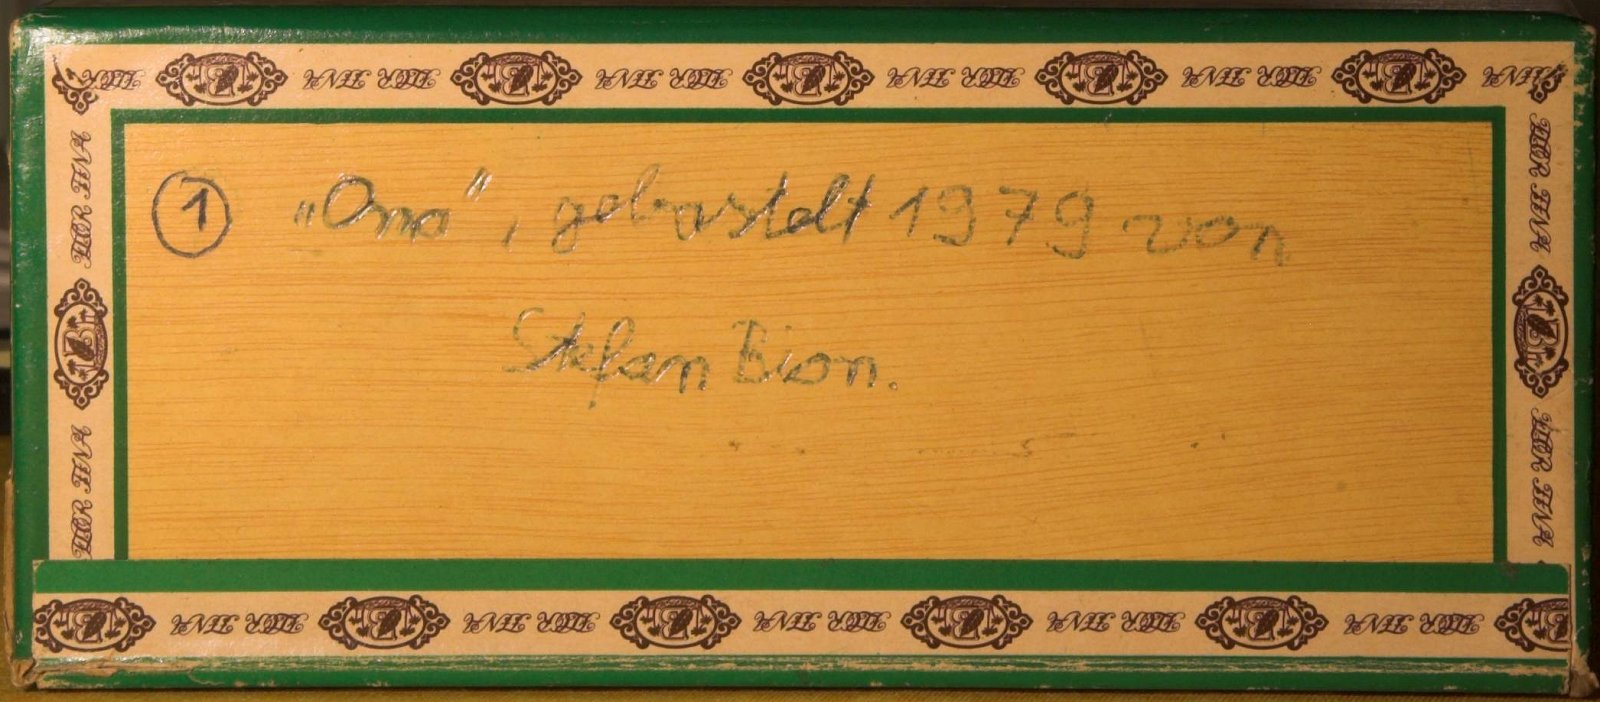 ① „Oma", gebastelt 1979 von
Stefan Bion.